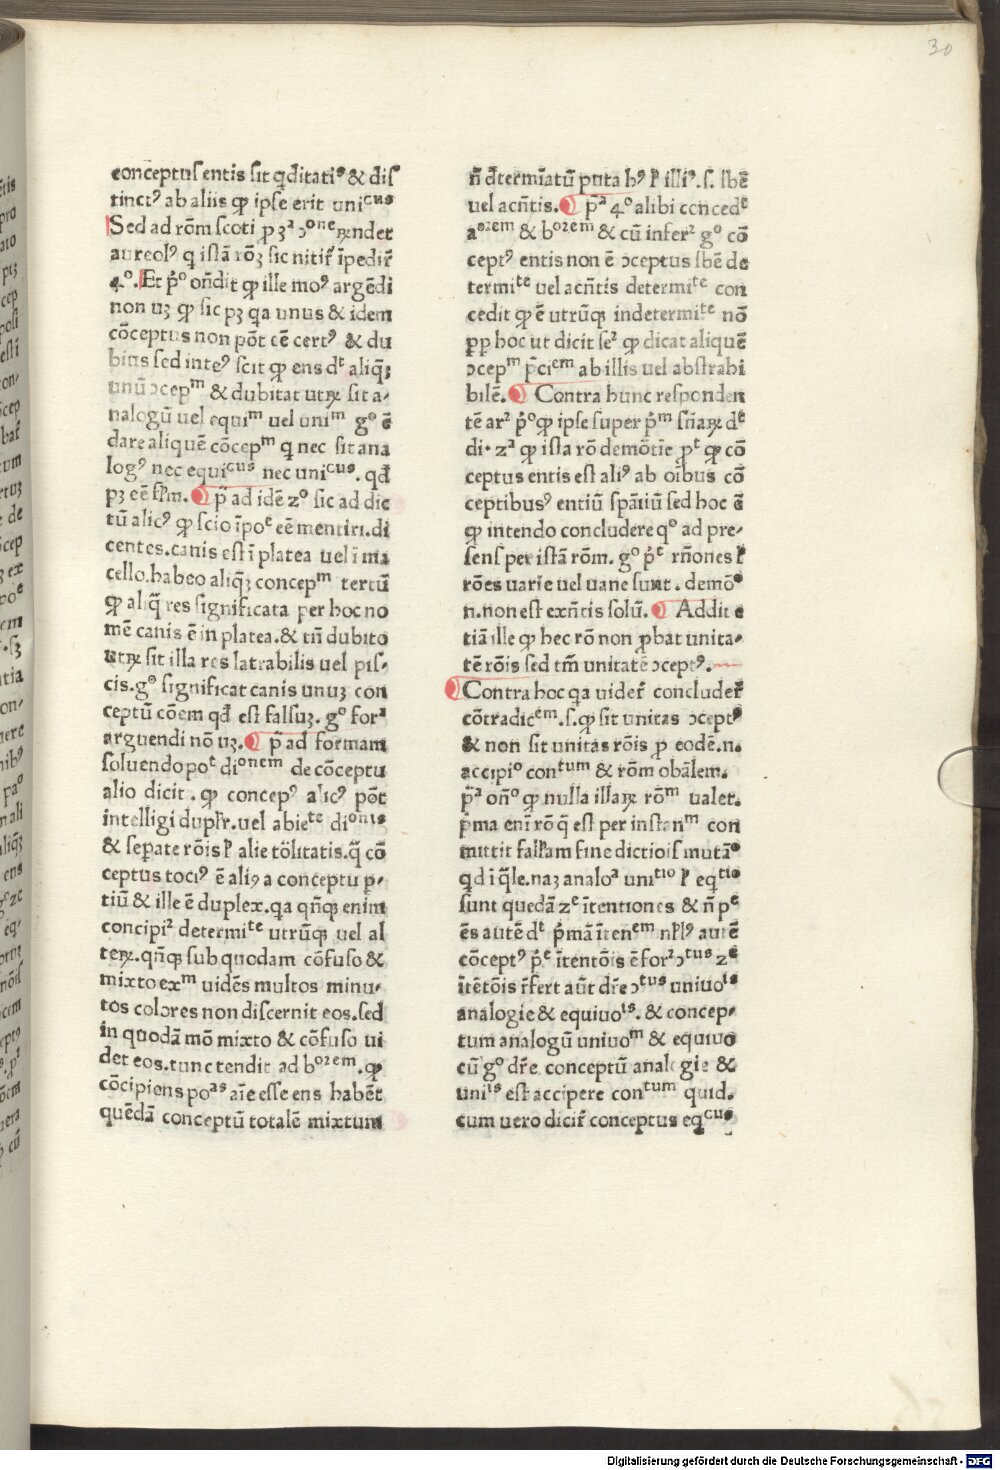 30
conceptus entis sit qd̄itati⁹ & dis
tinct⁹ ab aliis ꝙ ipse erit uniᶜᵘˢ
Sed ad rōm scoti ꝓ 3ᵃ ↄᵒⁿᵉ ꝶndet
aureol⁹ q istā rōꝫ sic nitit᷑ īpedir̄
4°. Et p̄° on̄dit ꝙ ille mo⁹ argēdi
non uꝫ ꝙ sic pꝫ qa unus & idem
cōceptus non pōt eē cert⁹ & du
bius sed inte⁹ scit ꝙ ens dᵗ aliqꝫ
unū ↄcepᵐ & dubitat utꝶ sit a-
nalogū uel equiᵐ uel uniᵐ g° ē
dare aliquē cōcepᵐ q nec sit ana
log⁹ nec equiᶜᵘˢ nec uniᶜᵘˢ. qd̄
pꝫ eē fl̄m. p̄ ad idē 2° sic ad dic
tū alic⁹ ꝙ scio īpoᵉ eē mentiri. di
centes. canis est ī platea uel ī ma
cello. habeo aliqꝫ concepᵐ tertū
ꝙ aliq̄ res significata per hoc no
mē canis ē in platea. & tn̄ dubito
utꝶ sit illa res latrabilis uel pis-
cis. g° significat canis unuꝫ con
ceptū cōem qd̄ est falsuꝫ. g° forᵃ
arguendi nō uꝫ. p̄ ad formam
soluendo poᵗ diᵒⁿᵉᵐ de cōceptu
alio dicit. ꝙ concep⁹ alic⁹ pōt
intelligi duplr̄. uel abieᵗᵉ diᵒⁿⁱˢ
& seꝑate rōis ł alietōlitatis. q̄ cō
ceptus toci⁹ ē ali⁹ a conceptu ꝑ-
tiū & ille ē duplex. qa qn̄qꝫ enim
concipiᵃ determiᵗᵉ utrūqꝫ uel al
teꝶ. qn̄qꝫ sub quodam cōfuso &
mixto exᵐ uidēs multos minu-
tos colores non discernit eos. sed
in quodā mō mixto & cōfuso ui
det eos. tunc tendit ad bᵒʳᵉᵐ. ꝙ
cōcipiens poᵃˢ aīe esse ens habēt
quēdā conceptū totalē mixtum
n̄ d̄termīatū puta h⁹ ł illi⁹. s. sb̄ē
uel acn̄tis. p̄ᵃ 4° alibi concedᵉ
aᵒʳᵉᵐ & bᵒʳᵉᵐ & cū inferᵃ g° cō
cept⁹ entis non ē ↄceptus sb̄ē de
termiᵗᵉ uel acn̄tis determiᵗᵉ con
cedit ꝙ ē utrūqꝫ indetermiᵗᵉ nō
ꝓp hoc ut dicit seᵃ ꝙ dicat aliquē
ↄcepᵐ p̄ciᵉᵐ ab illis uel abstrahi
bilē. Contra hunc responden
tē arᵃ p̄°ꝙ ipse super p̄ᵐ sn̄aꝶ dᵉ
di. 2ᵃ ꝙ ista rō demōtīe ꝓᵗ ꝙ cō
ceptus entis est ali⁹ ab oībus cō
ceptibus⁹ entiū sp̄āliū sed hoc ē
ꝙ intendo concludere q° ad pre-
sens per istā rōm. g° p̄ᵉ rn̄ones ł
rōes uarie uel uane sunt. demō°
n. non est exn̄tis solū. Addit e
tiā ille ꝙ hec rō non ꝓbat unita-
tē rōis sed tm̄ unitatē ↄcept⁹.
Contra hoc qa uidet᷑ concludet᷑
cōtradicᵉᵐ. s. ꝙ sit unitas ↄcept⁹
& non sit unitas rōis ꝓ eodē. n.
accipi° conᵗᵘᵐ & rōm obālem.
p̄ᵃ on̄° ꝙ nulla illaꝶ rōᵐ ualet.
p̄ma enī rō q̄ est per instanᵐ con
mittit fall̄am fine dictiois mutā°
qd ī q̄le. naꝫ analoᵃ uniᵗⁱᵒ ł eqᵗⁱᵒ
sunt quedā 2ᵉ ītentiones & n̄ pᵉ
ēs autē dᵗ p̄mā ītenᵉᵐ nł⁹ autē
cōcept⁹ p̄ᵉ ītentōis ē forᵃ ↄᵗᵘˢ 2ᵉ
ītētōis r̄fert aūt dr̄e ↄᵗᵘˢ uniuoⁱˢ
analogie & equiuoⁱˢ. & concep-
tum analogū uniuoᵐ & equiuo
cū g° dr̄e conceptū analogie &
uniⁱˢ est accipere conᵗᵘᵐ quid.
cum uero dicit᷑ conceptus eqᶜᵘˢ
Digitalisierung gefördert durch die Deutsche Forschungsgemeinschaft - DFG